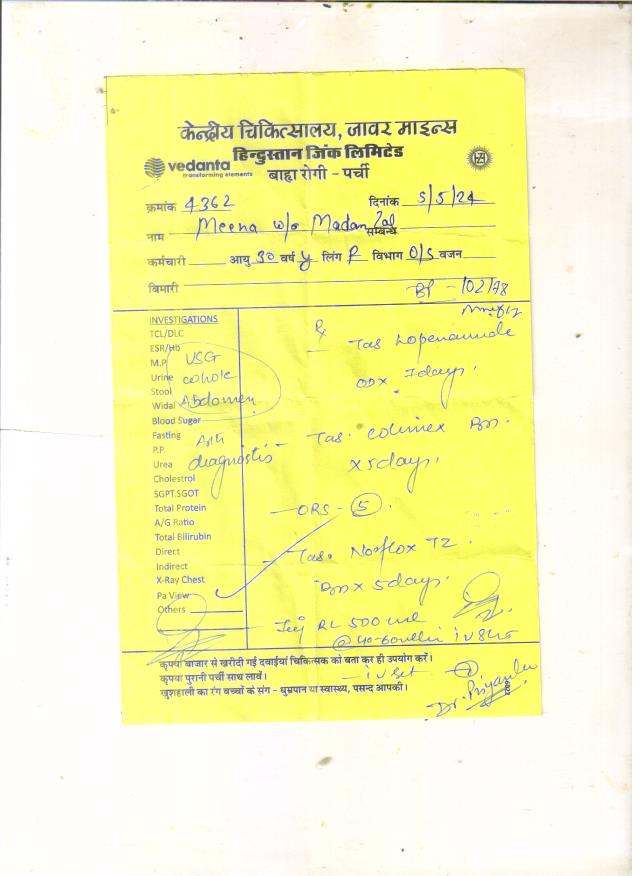 केन्द्रीय चिकित्सालय, जावर माइन्स
हिन्दुस्तान जिंक लिमिटेड
vedanta
transforming elements
बाह्य रोगी - पर्ची
क्रमांक 4362 दिनांक 5/5/24
नाम Meena w/o Madan Lal सम्बन्ध
कर्मचारी आयु 30 वर्ष y लिंग F विभाग O/S वजन
बिमारी BP - 102/78
INVESTIGATIONS
TCL/DLC
ESR/Hb
M.P. USG
Urine whole
Stool
Widal Abdomen
Blood Sugar
Fasting
P.P.
Urea diagnostis
Cholestrol
SGPT.SGOT
Total Protein
A/G Ratio
Total Bilirubin
Direct
Indirect
X-Ray Chest
Pa View
Others
Rx
Tab Loperamide
OD x 7 days.
Tab. Colimex BD
x 5 days.
ORS - 5
Tab. Norflox TZ
BD x 5 days.
Inj RL 500 ml
IV Set
Dr. Priyanka
कृपया बाजार से खरीदी गई दवाईयां चिकित्सक को बता कर ही उपयोग करें।
कृपया पुरानी पर्ची साथ लावें।
खुशहाली का रंग बच्चों के संग - धुम्रपान या स्वास्थ्य, पसन्द आपकी।